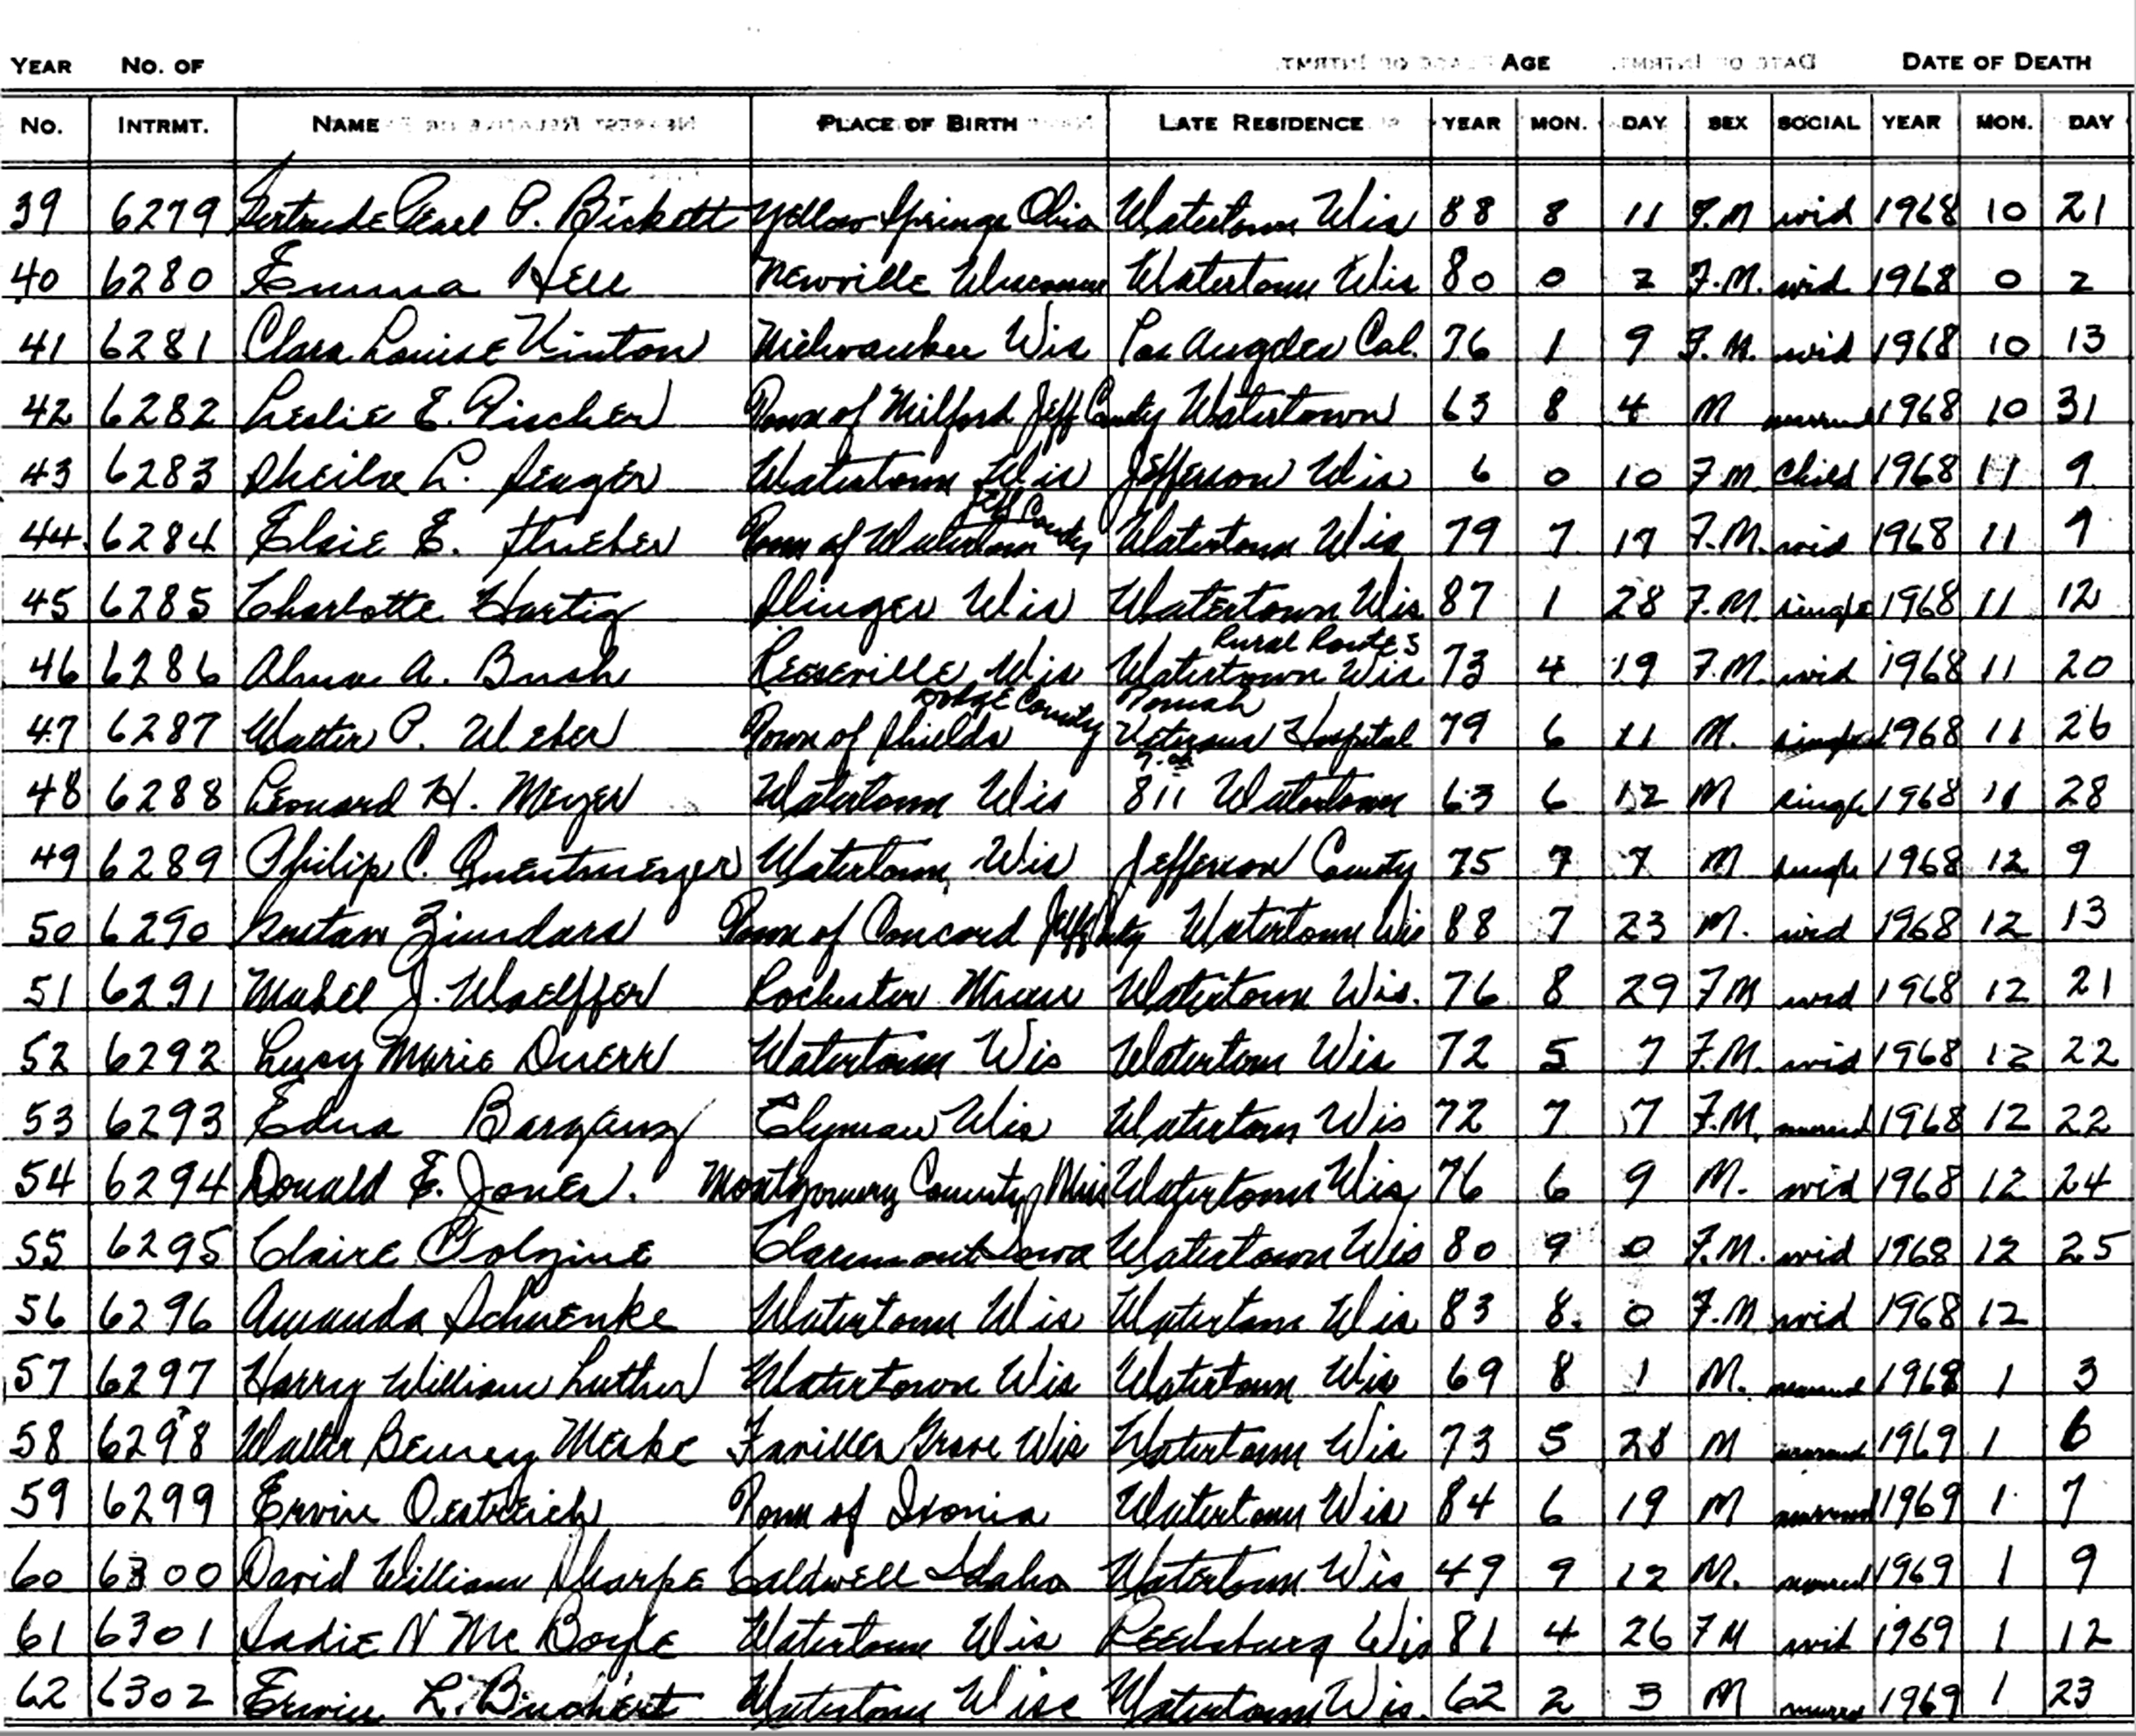 YEAR NO. OF AGE DATE OF DEATH
NO. INTRMT. NAME PLACE OF BIRTH LATE RESIDENCE YEAR MON. DAY SEX SOCIAL YEAR MON. DAY
39 6279 Gertrude Pearl P. Bickett Yellow Springs Ohio Watertown Wis 88 8 11 F.M wid 1968 10 21
40 6280 Emma Hell Newville Wisconsin Watertown Wis 80 0 2 F.M. wid 1968 0 2
41 6281 Clara Louise Kinton Milwaukee Wis Los Angeles Cal. 76 1 9 F.M. wid 1968 10 13
42 6282 Leslie E. Fischer Town of Milford Jeff County Watertown 63 8 4 M married 1968 10 31
43 6283 Sheila L. Seager Watertown Wis Jefferson Wis 6 0 10 F.M. Child 1968 11 9
Jeff County
44. 6284 Elsie E. Town of Watertown Watertown Wis 79 7 17 F.M. wid 1968 11 9
45 6285 Charlotte Hartig Slinger Wis Watertown Wis 87 1 28 F.M. single 1968 11 12
Rural Route 3
46 6286 Alma A. Bush Reeseville Wis Watertown Wis 73 4 19 F.M. wid 1968 11 20
Dodge County Tomah
47 6287 Walter P. Weber Town of Shields Veterans Hospital 79 6 11 M. single 1968 11 26
48 6288 Leonard H. Meyer Watertown Wis 811 Watertown 63 6 12 M single 1968 11 28
49 6289 Philip C. Quentmeyer Watertown, Wis Jefferson County 75 7 7 M single 1968 12 9
50 6290 Gustav Zindars Town of Concord Jeff Cnty Watertown Wis 88 7 23 M. wid 1968 12 13
51 6291 Mabel J. Woelffer Rochester Minn Watertown Wis. 76 8 29 FM wid 1968 12 21
52 6292 Lucy Marie Duerr Watertown Wis Watertown Wis 72 5 7 F.M. wid 1968 12 22
53 6293 Edna Barganz Clyman Wis Watertown Wis 72 7 7 F.M. married 1968 12 22
54 6294 Donald E. Jones. Montgomery County, Miss Watertown Wis 76 6 9 M. wid 1968 12 24
55 6295 Claire Claremont Iowa Watertown Wis 80 9 0 F.M. wid 1968 12 25
56 6296 Amanda Schwenke Watertown Wis Watertown Wis 83 8. 0 F.M wid 1968 12
57 6297 Harry William Luther Watertown Wis Watertown Wis 69 8 1 M. married 1968 1 3
58 6298 Walter Merke Favilles Grove Wis Watertown Wis 73 5 28 M married 1969 1 6
59 6299 Ervin Oestreich Town of Ixonia Watertown Wis 84 6 19 M married 1969 1 7
60 6300 David William Sharpe Caldwell Idaho Watertown Wis 49 9 12 M. married 1969 1 9
61 6301 Sadie N Mc Boyle Watertown Wis Reedsburg Wis 81 4 26 FM wid 1969 1 12
62 6302 Erwin L. Buchert Watertown Wisc Watertown Wis. 62 2 3 M married 1969 1 23